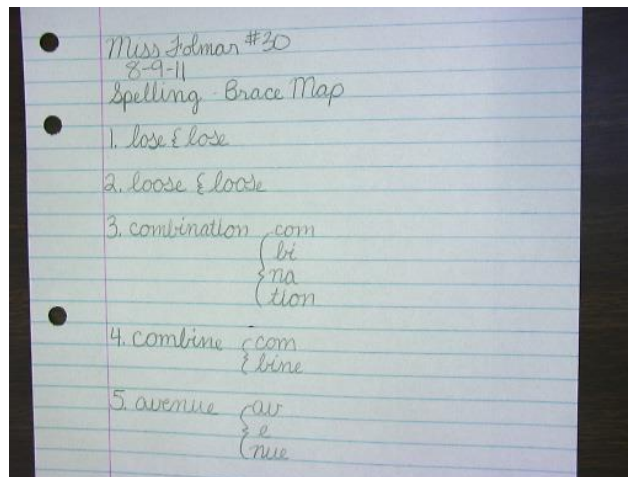 Miss Folmar #30
8-9-11
Spelling - Brace Map
1. lose { lose
2. loose { loose
3. combination { com
bi
na
tion
4. combine { com
bine
5. avenue { av
e
nue